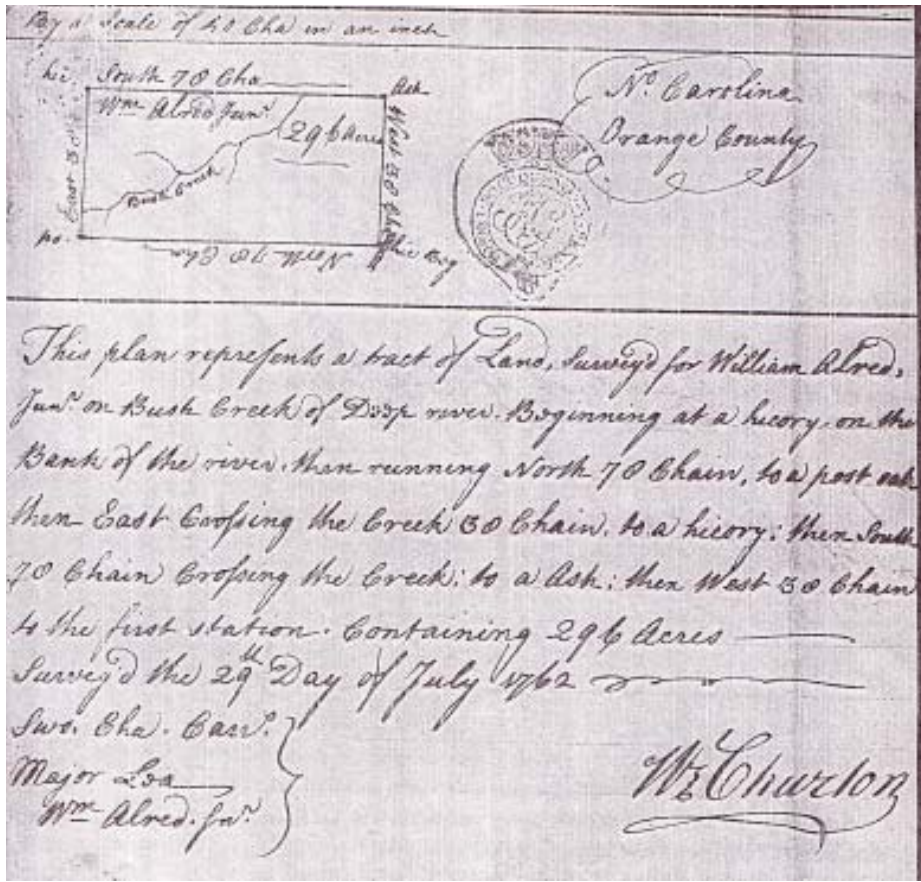 By a Scale of 40 Cha in an inch
hic South 78 Cha
Ash
Wm Alred Junr.
296 Acres
Bush Creek
East 38
West 38 Cha
po.
North 78 Cha
hic Beg
No. Carolina
Orange County
This plan represents a tract of Land, Survey'd for William Alred,
Junr. on Bush Creek of Deep river. Beginning at a hicory. on the
Bank of the river. then running North 78 Chain, to a post oak
then East Crossing the Creek 38 Chain. to a hicory; then South
78 Chain Crossing the Creek; to a Ash; then West 38 Chain
to the first station. Containing 296 Acres
Survey'd the 29th Day of July 1762
Swo. Cha. Carrs.
Major Lea
Wm Alred. Jnr.
Wm Churton